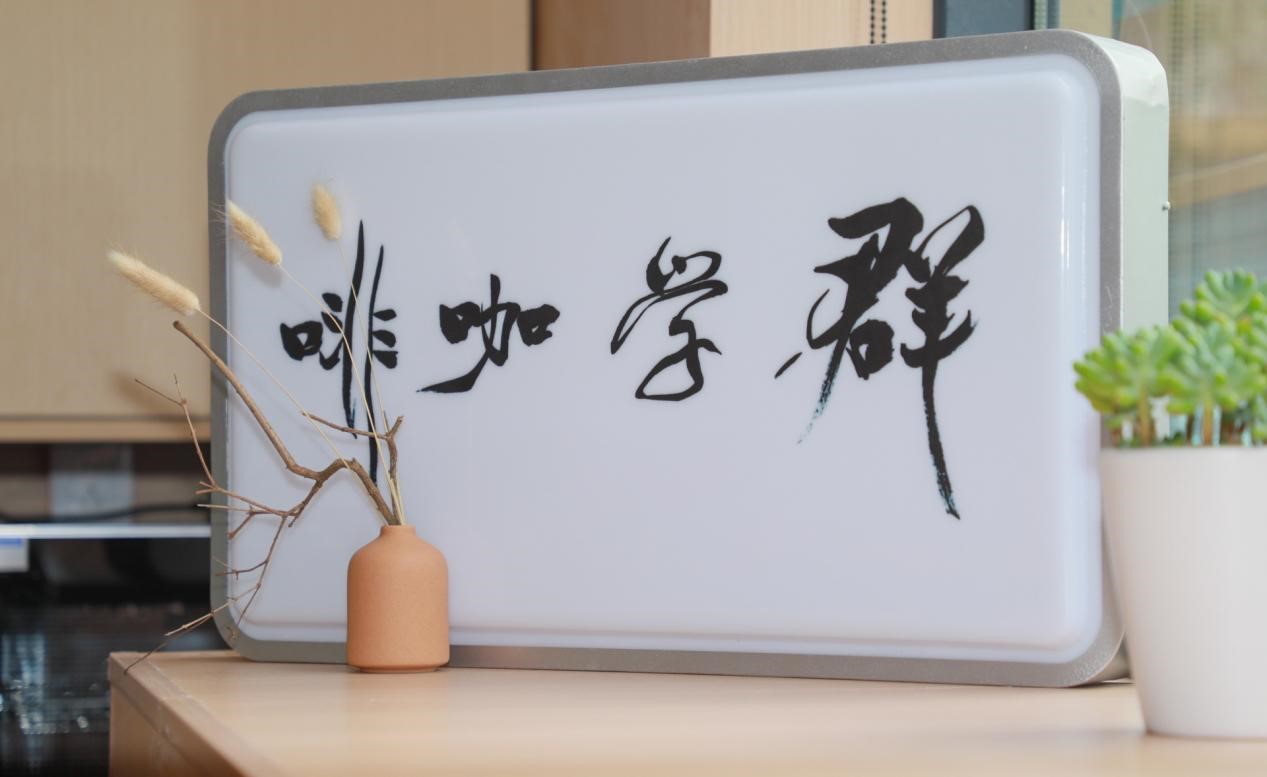 啡咖学群